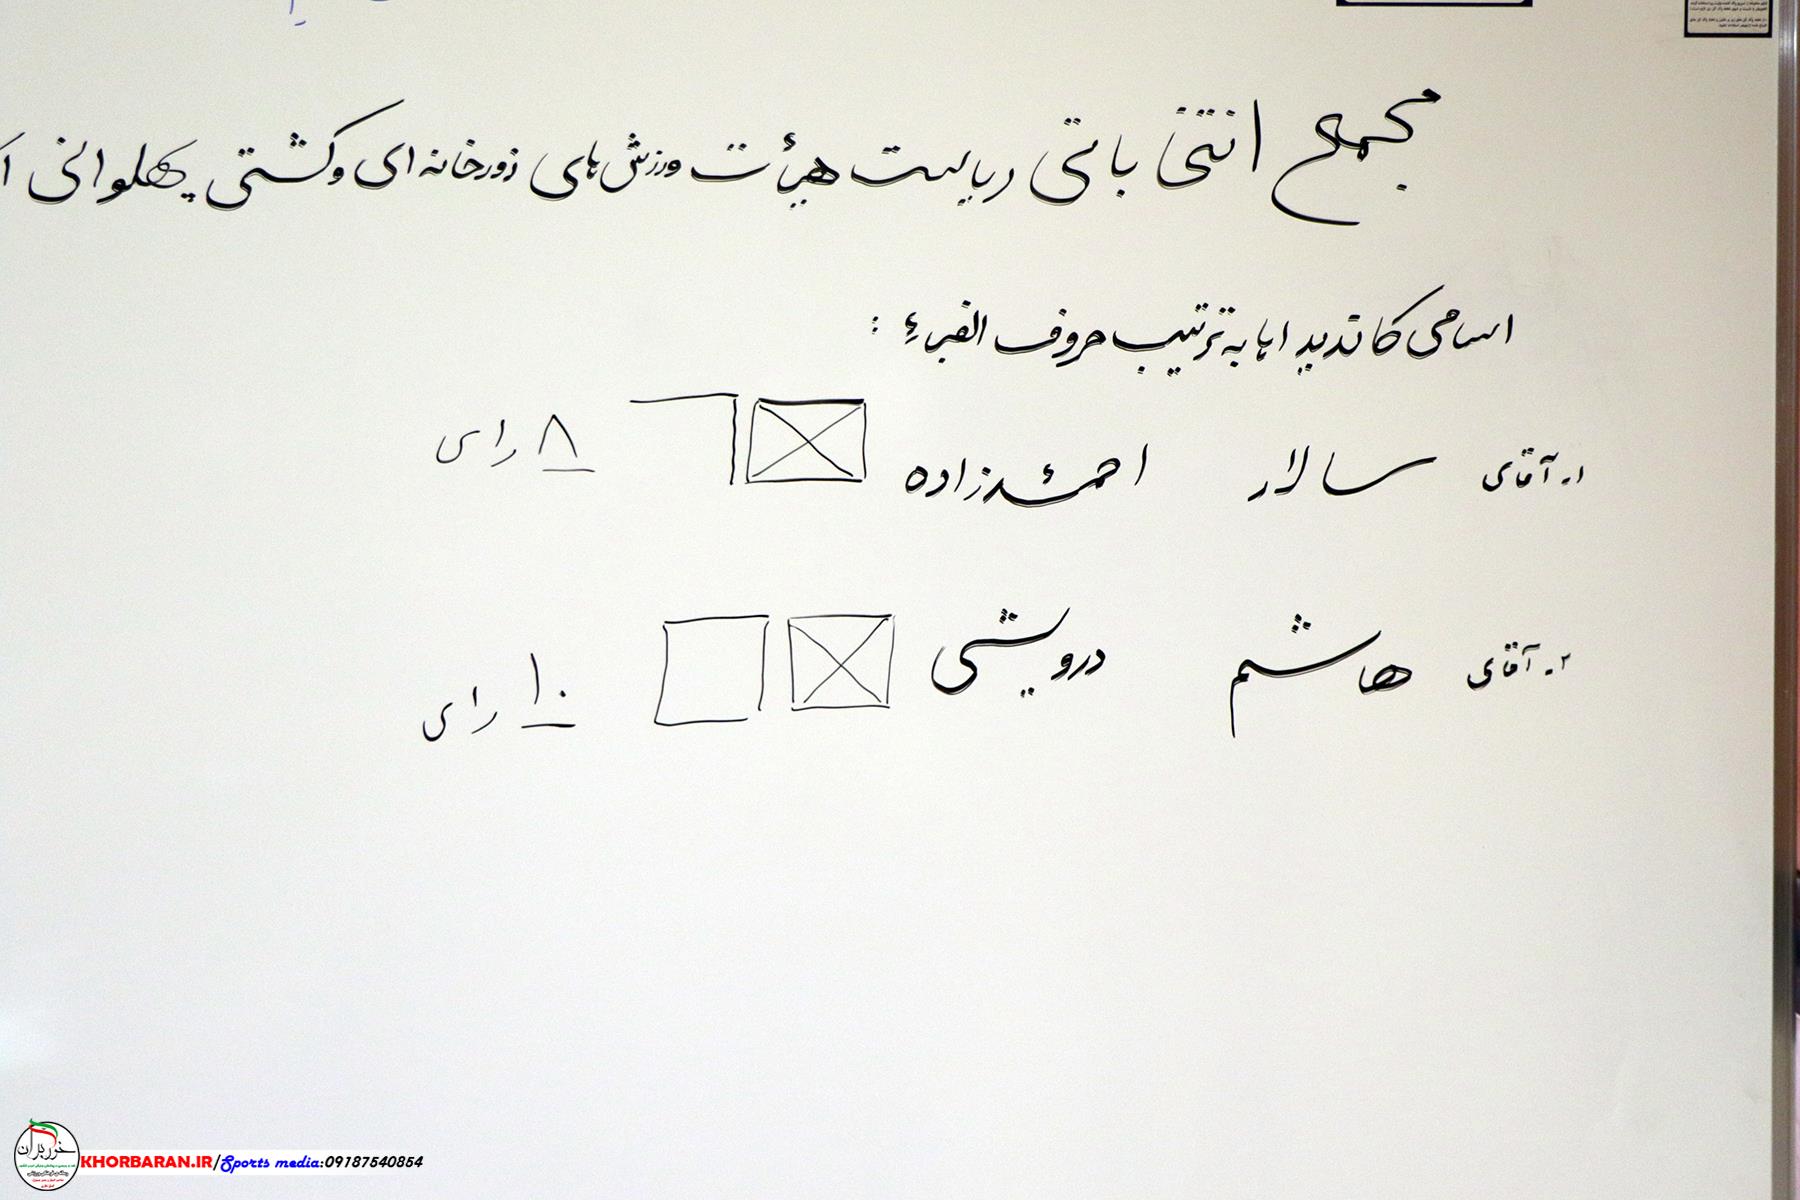 مجمع انتخاباتی ریاست هیأت ورزش های زورخانه ای و کشتی پهلوانی ا
اسامی کاندیداها به ترتیب حروف الفباء :
۱. آقای سالار احمدزاده ۸ رای
۲. آقای هاشم درویشی ۱۰ رای
خورباران
KHORBARAN.IR/Sports media:09187540854